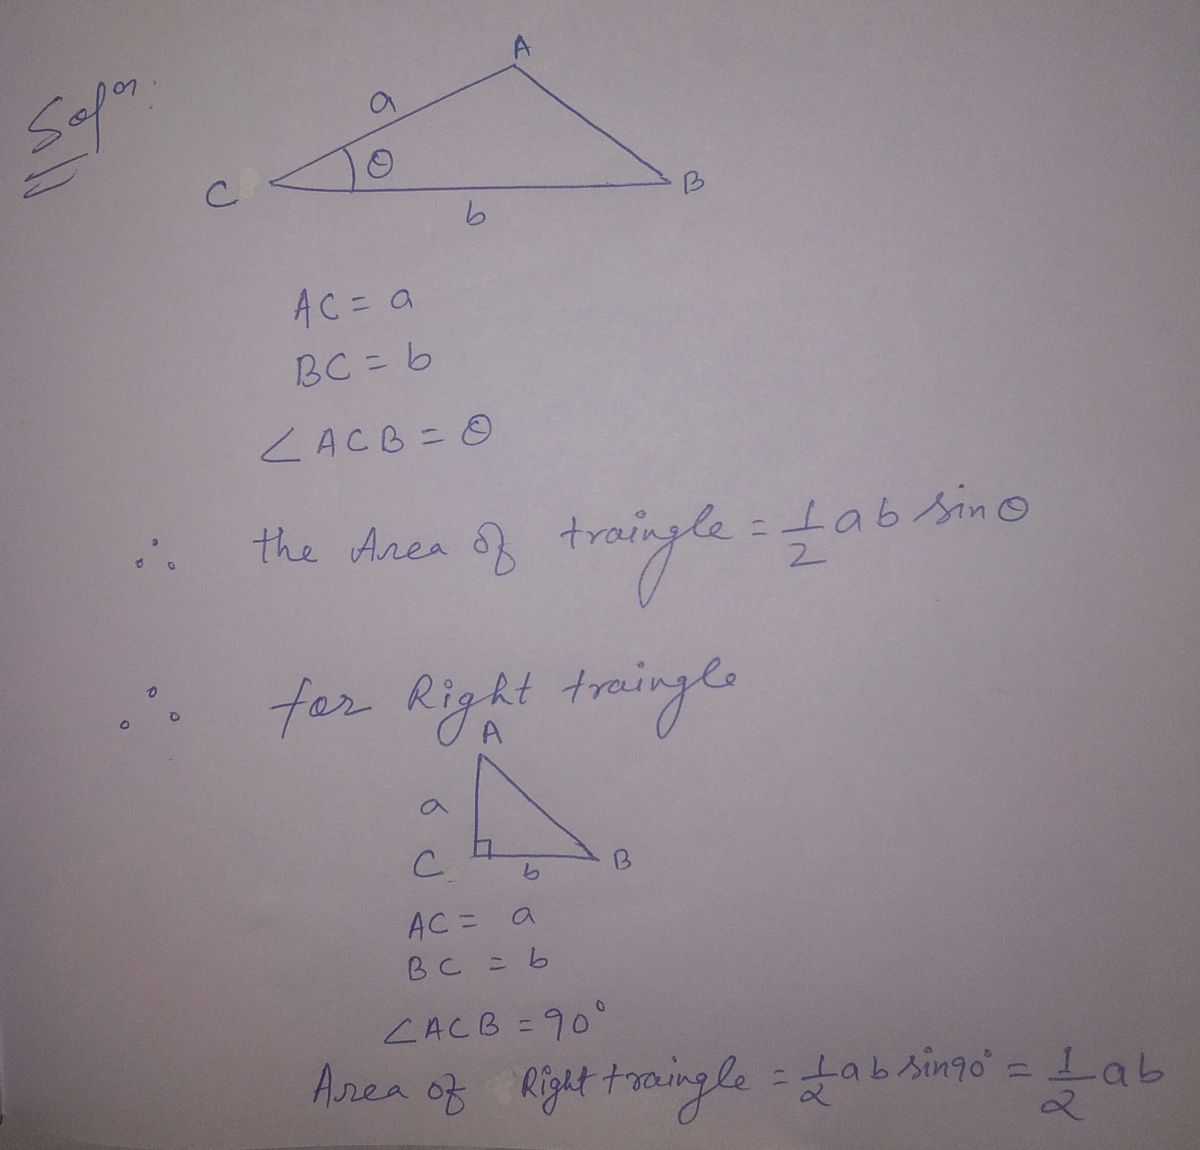 Solⁿ:
A
a
θ
C
B
b
AC = a
BC = b
∠ACB = θ
∴ the Area of traingle = 1/2 ab sinθ
∴ for Right traingle
A
a
C
b
B
AC = a
BC = b
∠ACB = 90°
Area of Right traingle = 1/2 ab sin90° = 1/2 ab